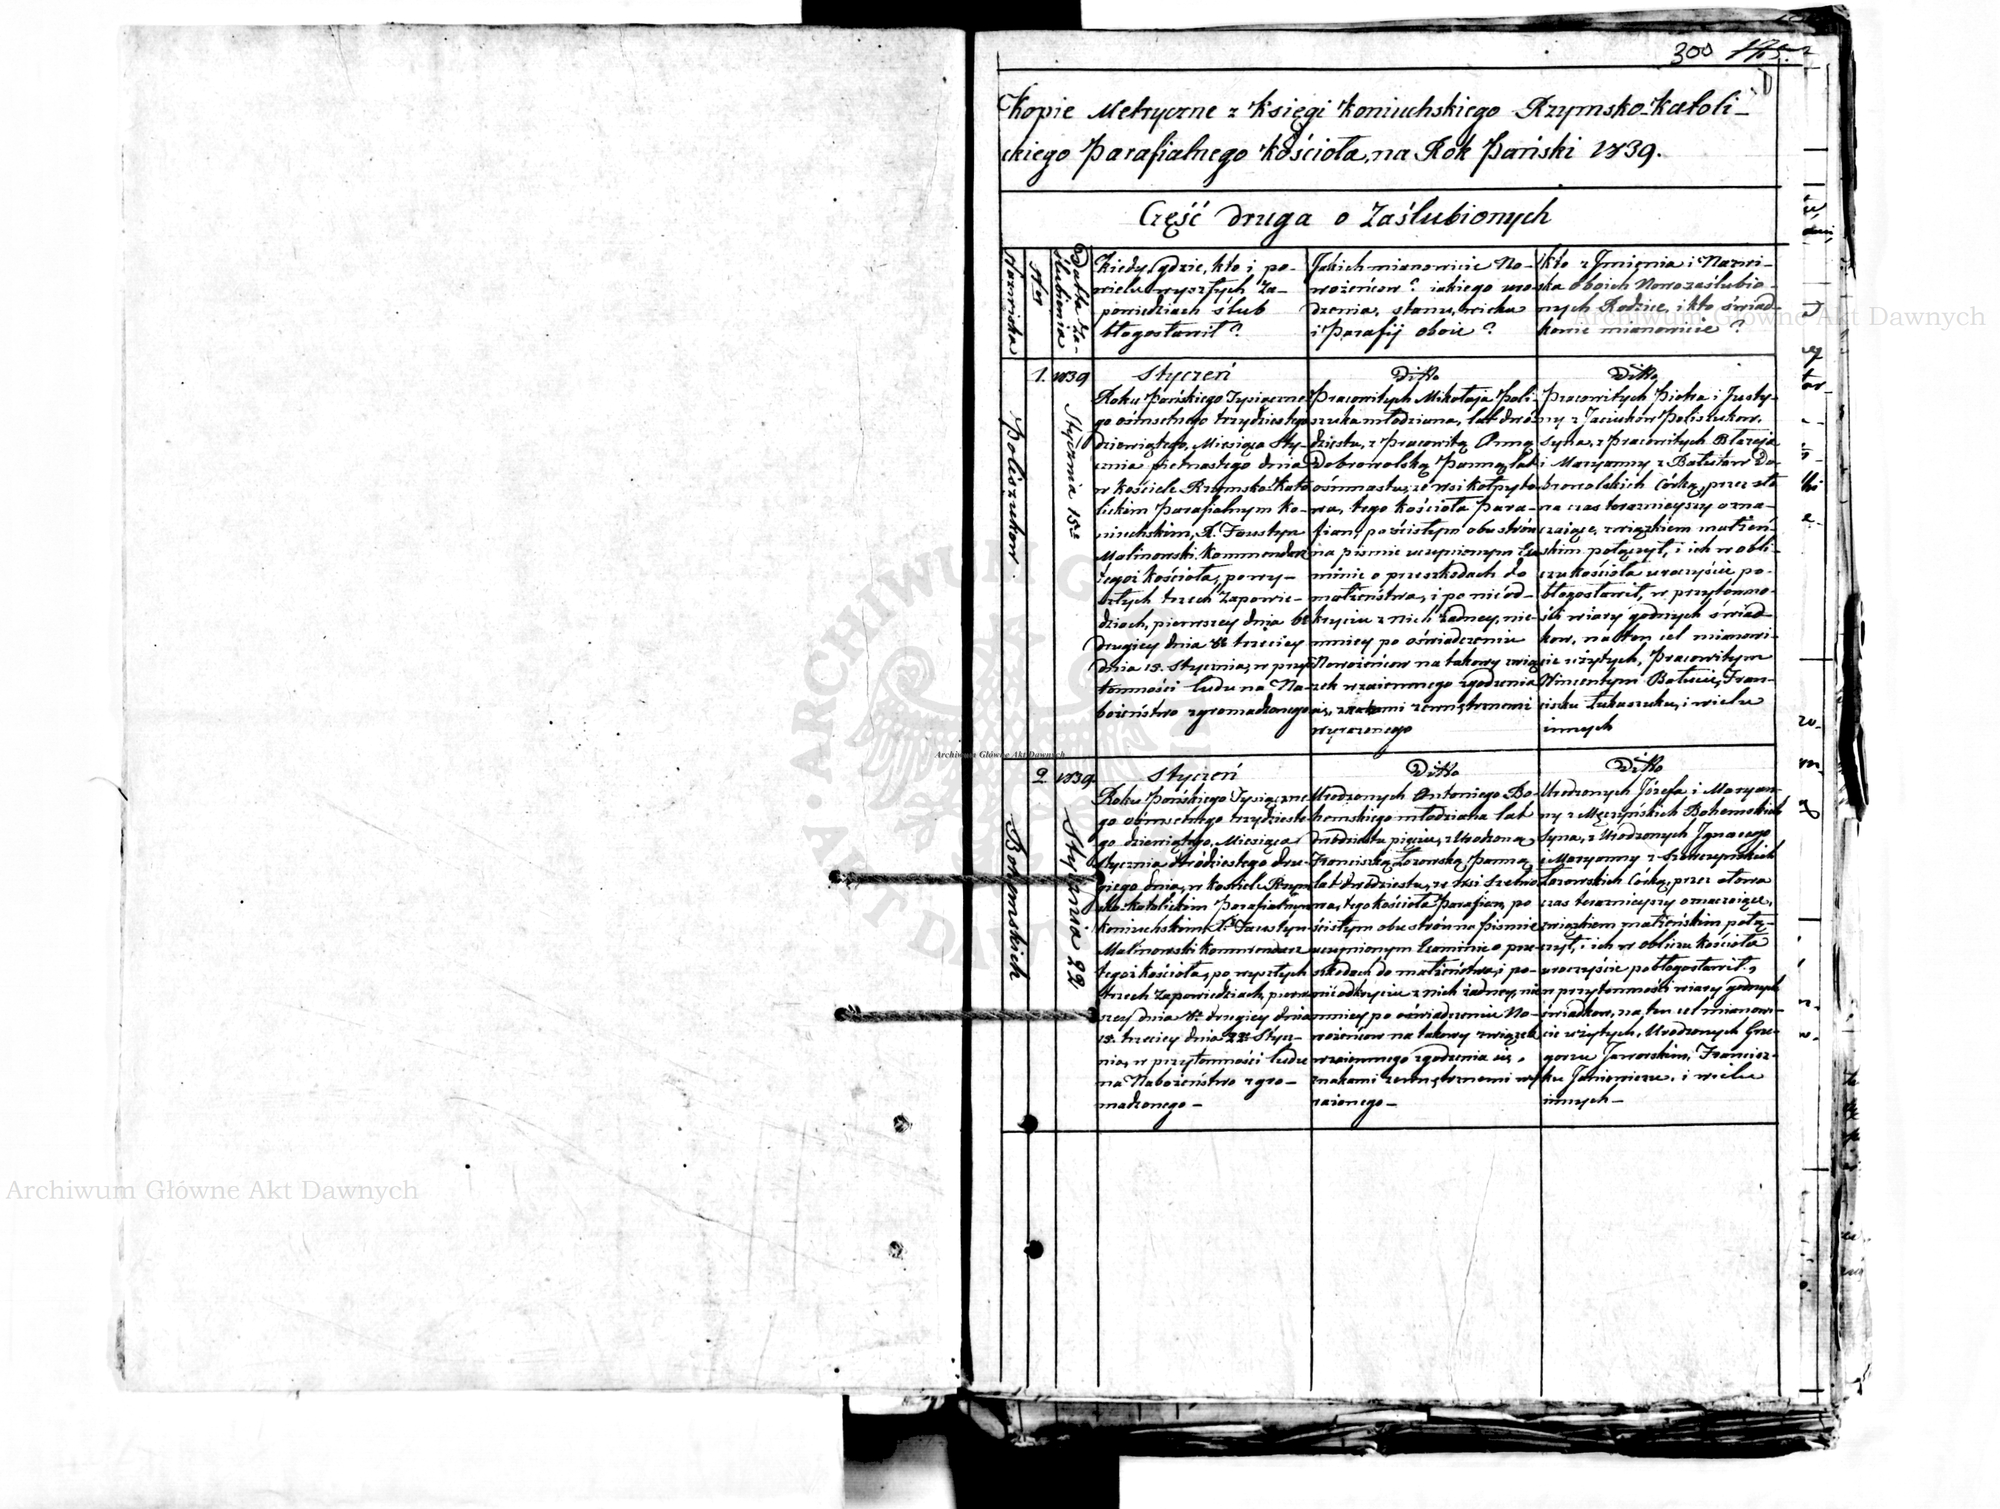 300
Kopie Metryczne z Księgi Koniuchskiego Rzymsko-Katoli-
ckiego Parafialnego Kościoła, na Rok Pański 1839.
Część druga o Zaślubionych
Nazwiska
Nr
Datta Za-
ślubienia
Kiedy, gdzie, kto i po
wielu wyszłych Za-
powiedziach ślub
błogosławił?
Jakich mianowicie No-
wożeńcow? iakiego uro-
dzenia, stanu, wieku
i Parafij oboie?
Kto z Jmienia i Nazwi-
ska oboich Nowozaślubio-
nych Rodzice, i kto świad-
kowie mianowicie?
Poliszukow
1.
1839
Stycznia 15
Styczeń
Roku Pańskiego Tysiączne-
go ośmsetnego trzydziestego
dziewiątego, Miesiąca Sty-
cznia pietnastego dnia
w Kościele Rzymsko-Kato
lickim Parafialnym Ko-
niuchskim, X. Faustyn
Malinowski Kommendarz
tegoż Kościoła, po wy-
szłych trzech Zapowie-
dziach, pierwszey dnia
drugiey dnia 8 trzeciey
dnia 15. Stycznia, w przy
tomności ludu na Na-
bożeństwo zgromadzonego
Ditto
Pracowitych Mikołaja Poli-
szuka młodziana, lat dwó-
dziestu, z Pracowitą Anną
Dobrowolską Panną, lat
ośmnastu, ze wsi Kołpyto
wa, tego Kościoła Para-
fian, po ścisłym obu strón
na pismie uczynionym Exa
minie o przeszkodach do
małżeństwa, i po nieod-
kryciu z nich żadney, nie-
mniey po oświadczeniu
Nowożeńcow na takowy zwią
zek wzaiemnego zgodzenia
się, znakami zewnętrznemi
wyrażonego
Ditto
Pracowitych Piotra i Justy-
ny z Jaciuków Poliszukow,
Syna, z Pracowitych Błażeja
i Maryanny z Bałutow Do-
browolskich Córką, przez sło
wa czas teraznieyszy ozna-
czaiące, związkiem małżeń-
skim połączył, i ich w obli-
czu Kościoła uroczyście po-
błogosławił, w przytomno-
ści wiary godnych świad-
kow, na ten cel mianowi-
cie użytych, Pracowitym
Wincentym Bałucie, Fran-
ciszku Łukaszuku, i wielu
innych
Bohemskich
2.
1839
Stycznia 22
Styczeń
Roku Pańskiego Tysiączne
go ośmsetnego trzydzieste
go dziewiątego, Miesiąca
Stycznia dwódziestego dru-
giego dnia, w Kościele Rzym
sko-Katolickim Parafialnym
Koniuchskim X. Faustyn
Malinowski Kommendarz
tegoż Kościoła, po wyszłych
trzech Zapowiedziach, pierw
szey dnia 8. drugiey dnia
15. trzeciey dnia 22 Stycz-
nia, w przytomności ludu
na Nabożeństwo zgro-
madzonego -
Ditto
Urodzonych Antoniego Bo-
hemskiego młodziana lat
dwódziestu pięciu, z Urodzoną
Franciszką Łozowską, Panną
lat dwódziestu, ze Wsi
tego Kościoła Parafian, po
ścisłym obu strón na pismie
uczynionym Examinie o prze
szkodach do małżeństwa, i po-
nieodkryciu z nich żadney, nie
mniey po oświadczeniu No-
wożeńcow na takowy związek
wzaiemnego zgodzenia się,
znakami zewnętrznemi wy
rażonego -
Ditto
Urodzonych Józefa i Maryan-
ny z Męczyńskich Bohemskich
Syna, z Urodzonych Jgnacego
i Maryanny z
Łozowskich Córką, przez słowa
czas teraznieyszy oznaczaiące,
związkiem małżeńskim połą-
czył, i ich w obliczu Kościoła
uroczyście pobłogosławił,
w przytomności wiary godnych
świadkow, na ten cel mianowi-
cie użytych, Urodzonych Grze-
gorzu Jaworskim, Francisz-
ku Janiewiczu, i wielu
innych -
Archiwum Główne Akt Dawnych
Archiwum Główne Akt Dawnych
Archiwum Główne Akt Dawnych